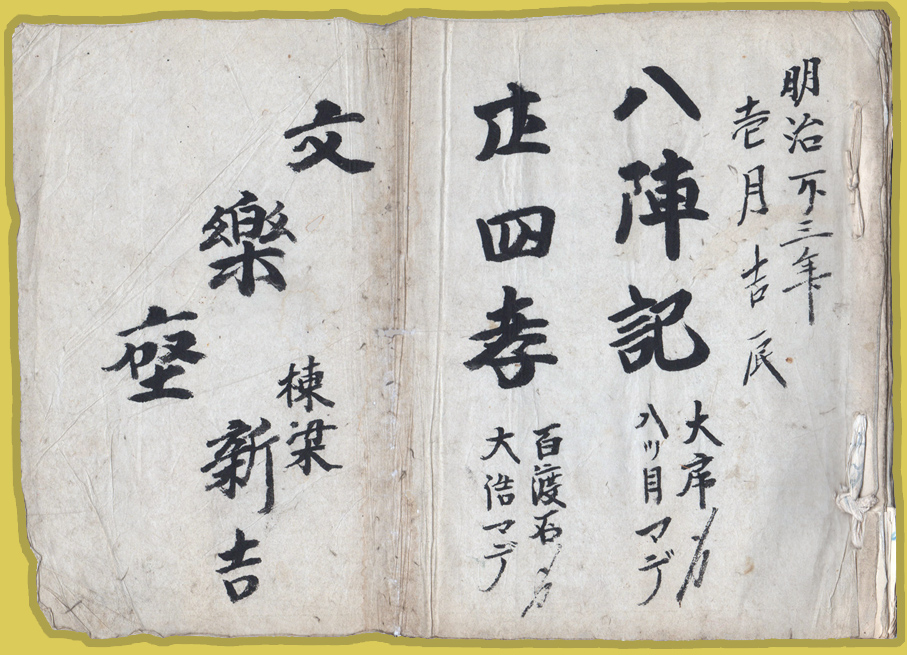 明治卅三年
壱月吉辰
八陣記
大序ヨリ
八ツ目マデ
廿四孝
百渡石ヨリ
大詰マデ
文樂座
棟梁
新吉